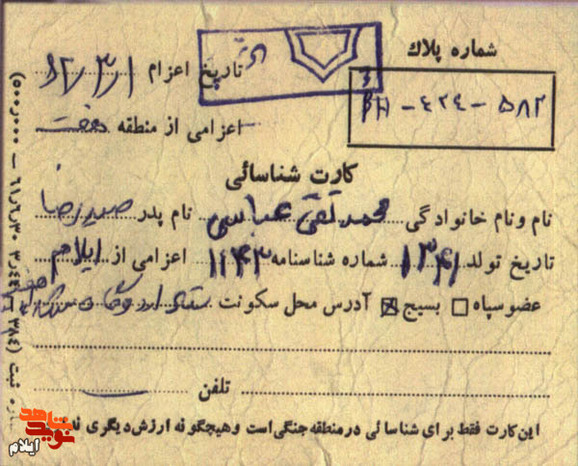 شماره پلاک
تاریخ اعزام ۶۲/۳/۱
PH - ۴۲۴ - ۵۸۲
اعزامی از منطقه هفت
کارت شناسائی
نام و نام خانوادگی محمد تقی عباسی نام پدر صیدرضا
تاریخ تولد ۱۳۴۱ شماره شناسنامه ۱۱۴۳ اعزامی از ایلام
عضو سپاه بسیج آدرس محل سکونت
تلفن
این کارت فقط برای شناسائی در منطقه جنگی است و هیچگونه ارزش دیگری
نوید شاهد
ایلام